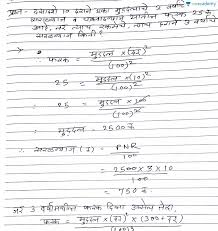 प्रश्न - द.सा.द.शे 10 दराने एका मुद्दलाचे 2 वर्षाचे
चक्रवाढव्याज व सरळव्याज यांतील फरक 25 रु.
आहे, तर त्याच रकमेचे, त्याच दराने 3 वर्षाचे
सरळव्याज किती?
∴ फरक = मुद्दल × (दर)² / (100)²
∴ 25 = मुद्दल × (10)² / (100)²
∴ 25 = मुद्दल × 100 / (100)²
∴ मुद्दल = 2500 रु
∴ सरळव्याज (I) = PNR / 100
= 2500 × 3 × 10 / 100
= 750 रु
जर 3 वर्षामधील फरक दिला असेल तर
फरक = मुद्दल × (दर)² × (300 + दर) / (100)³